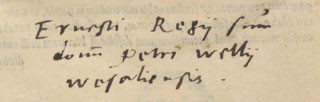 Ernesti Regij sum
dono petri wellij
wesaliensis.